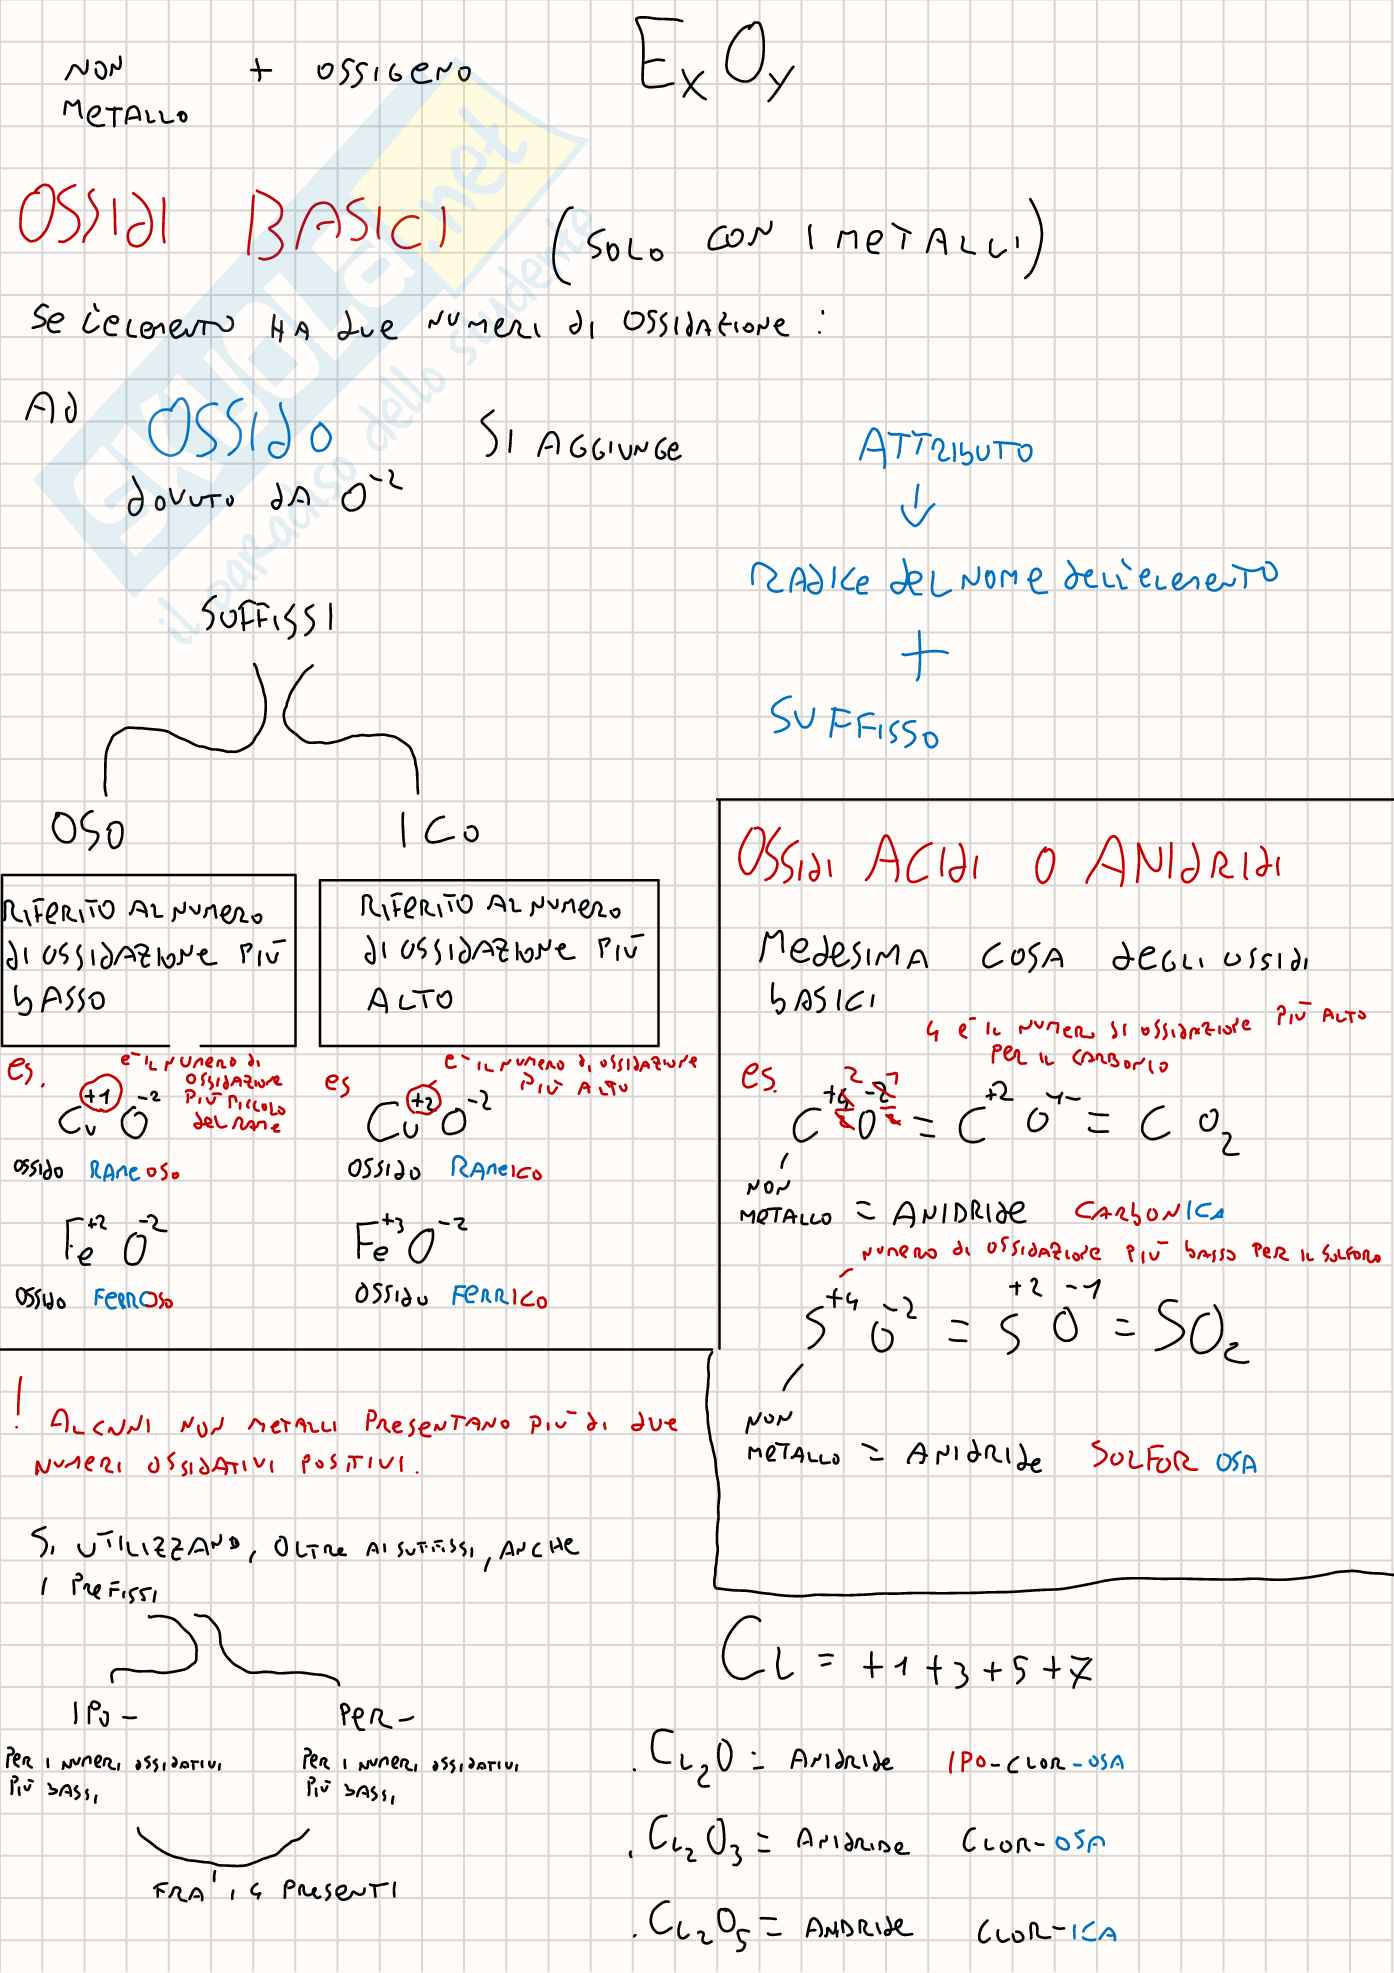 NON + OSSIGENO ExOy
METALLO
OSSIDI BASICI (SOLO CON I METALLI)
SE L'ELEMENTO HA DUE NUMERI DI OSSIDAZIONE :
AD OSSIDO SI AGGIUNGE
DOVUTO DA O⁻²
ATTRIBUTO
↓
RADICE DEL NOME DELL'ELEMENTO
+
SUFFISSO
SUFFISSI
OSO ICO
RIFERITO AL NUMERO
DI OSSIDAZIONE PIÙ
BASSO
RIFERITO AL NUMERO
DI OSSIDAZIONE PIÙ
ALTO
es.
È IL NUMERO DI
OSSIDAZIONE
PIÙ PICCOLO
DEL RAME
Cu⁺¹ O⁻²
OSSIDO RAMEOSO
Fe⁺² O⁻²
OSSIDO FERROSO
es
È IL NUMERO DI OSSIDAZIONE
PIÙ ALTO
Cu⁺² O⁻²
OSSIDO RAMEICO
Fe⁺³ O⁻²
OSSIDO FERRICO
OSSIDI ACIDI O ANIDRIDI
MEDESIMA COSA DEGLI OSSIDI
BASICI
4 È IL NUMERO DI OSSIDAZIONE PIÙ ALTO
PER IL CARBONIO
es.
2 -1
C⁺⁴/2 O⁻²/2 = C⁺² O¹⁻ = CO₂
NON
METALLO = ANIDRIDE CARBONICA
NUMERO DI OSSIDAZIONE PIÙ BASSO PER IL SOLFORO
S⁺⁴ O⁻² = S⁺² O⁻¹ = SO₂
NON
METALLO = ANIDRIDE SOLFOR OSA
! ALCUNI NON METALLI PRESENTANO PIÙ DI DUE
NUMERI OSSIDATIVI POSITIVI.
SI UTILIZZANO, OLTRE AI SUFFISSI, ANCHE
I PREFISSI
IPO- PER-
PER I NUMERI OSSIDATIVI
PIÙ BASSI
PER I NUMERI OSSIDATIVI
PIÙ BASSI
FRA' I 4 PRESENTI
CL = +1 +3 +5 +7
. CL₂O = ANIDRIDE IPO-CLOR-OSA
. CL₂O₃ = ANIDRIDE CLOR-OSA
. CL₂O₅ = ANIDRIDE CLOR-ICA
SKUOLA.net
il paradiso dello studente